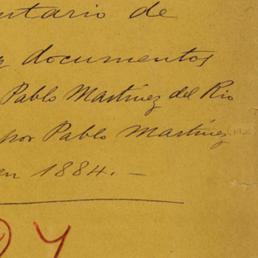 ntario de
documentos
Pablo Martínez del Rio
por Pablo Martínez
en 1884. —